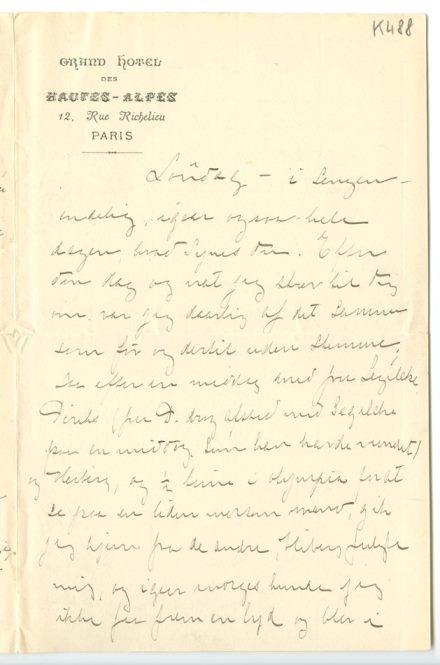 K488
GRAND HOTEL
DES
HAUTES-ALPES
12, Rue Richelieu
PARIS
Löndag – i Sengen –
endelig, igaar ogsaa hele
dagen, hvad synes du. Efter
den dag og nat jeg skrev til dig
om var jeg daarlig af det samme
som før og dertil uden stemme,
saa efter en middag med fru
(fru D. drog afsted med
paa en middag som han havde vundet)
og Heiberg, og ½ time i Olympia for at
se paa en liden morsom mand, gik
jeg hjem fra de andre, Heiberg fulgte
mig, og igaar morges kunde jeg
ikke faa frem en lyd og blev i